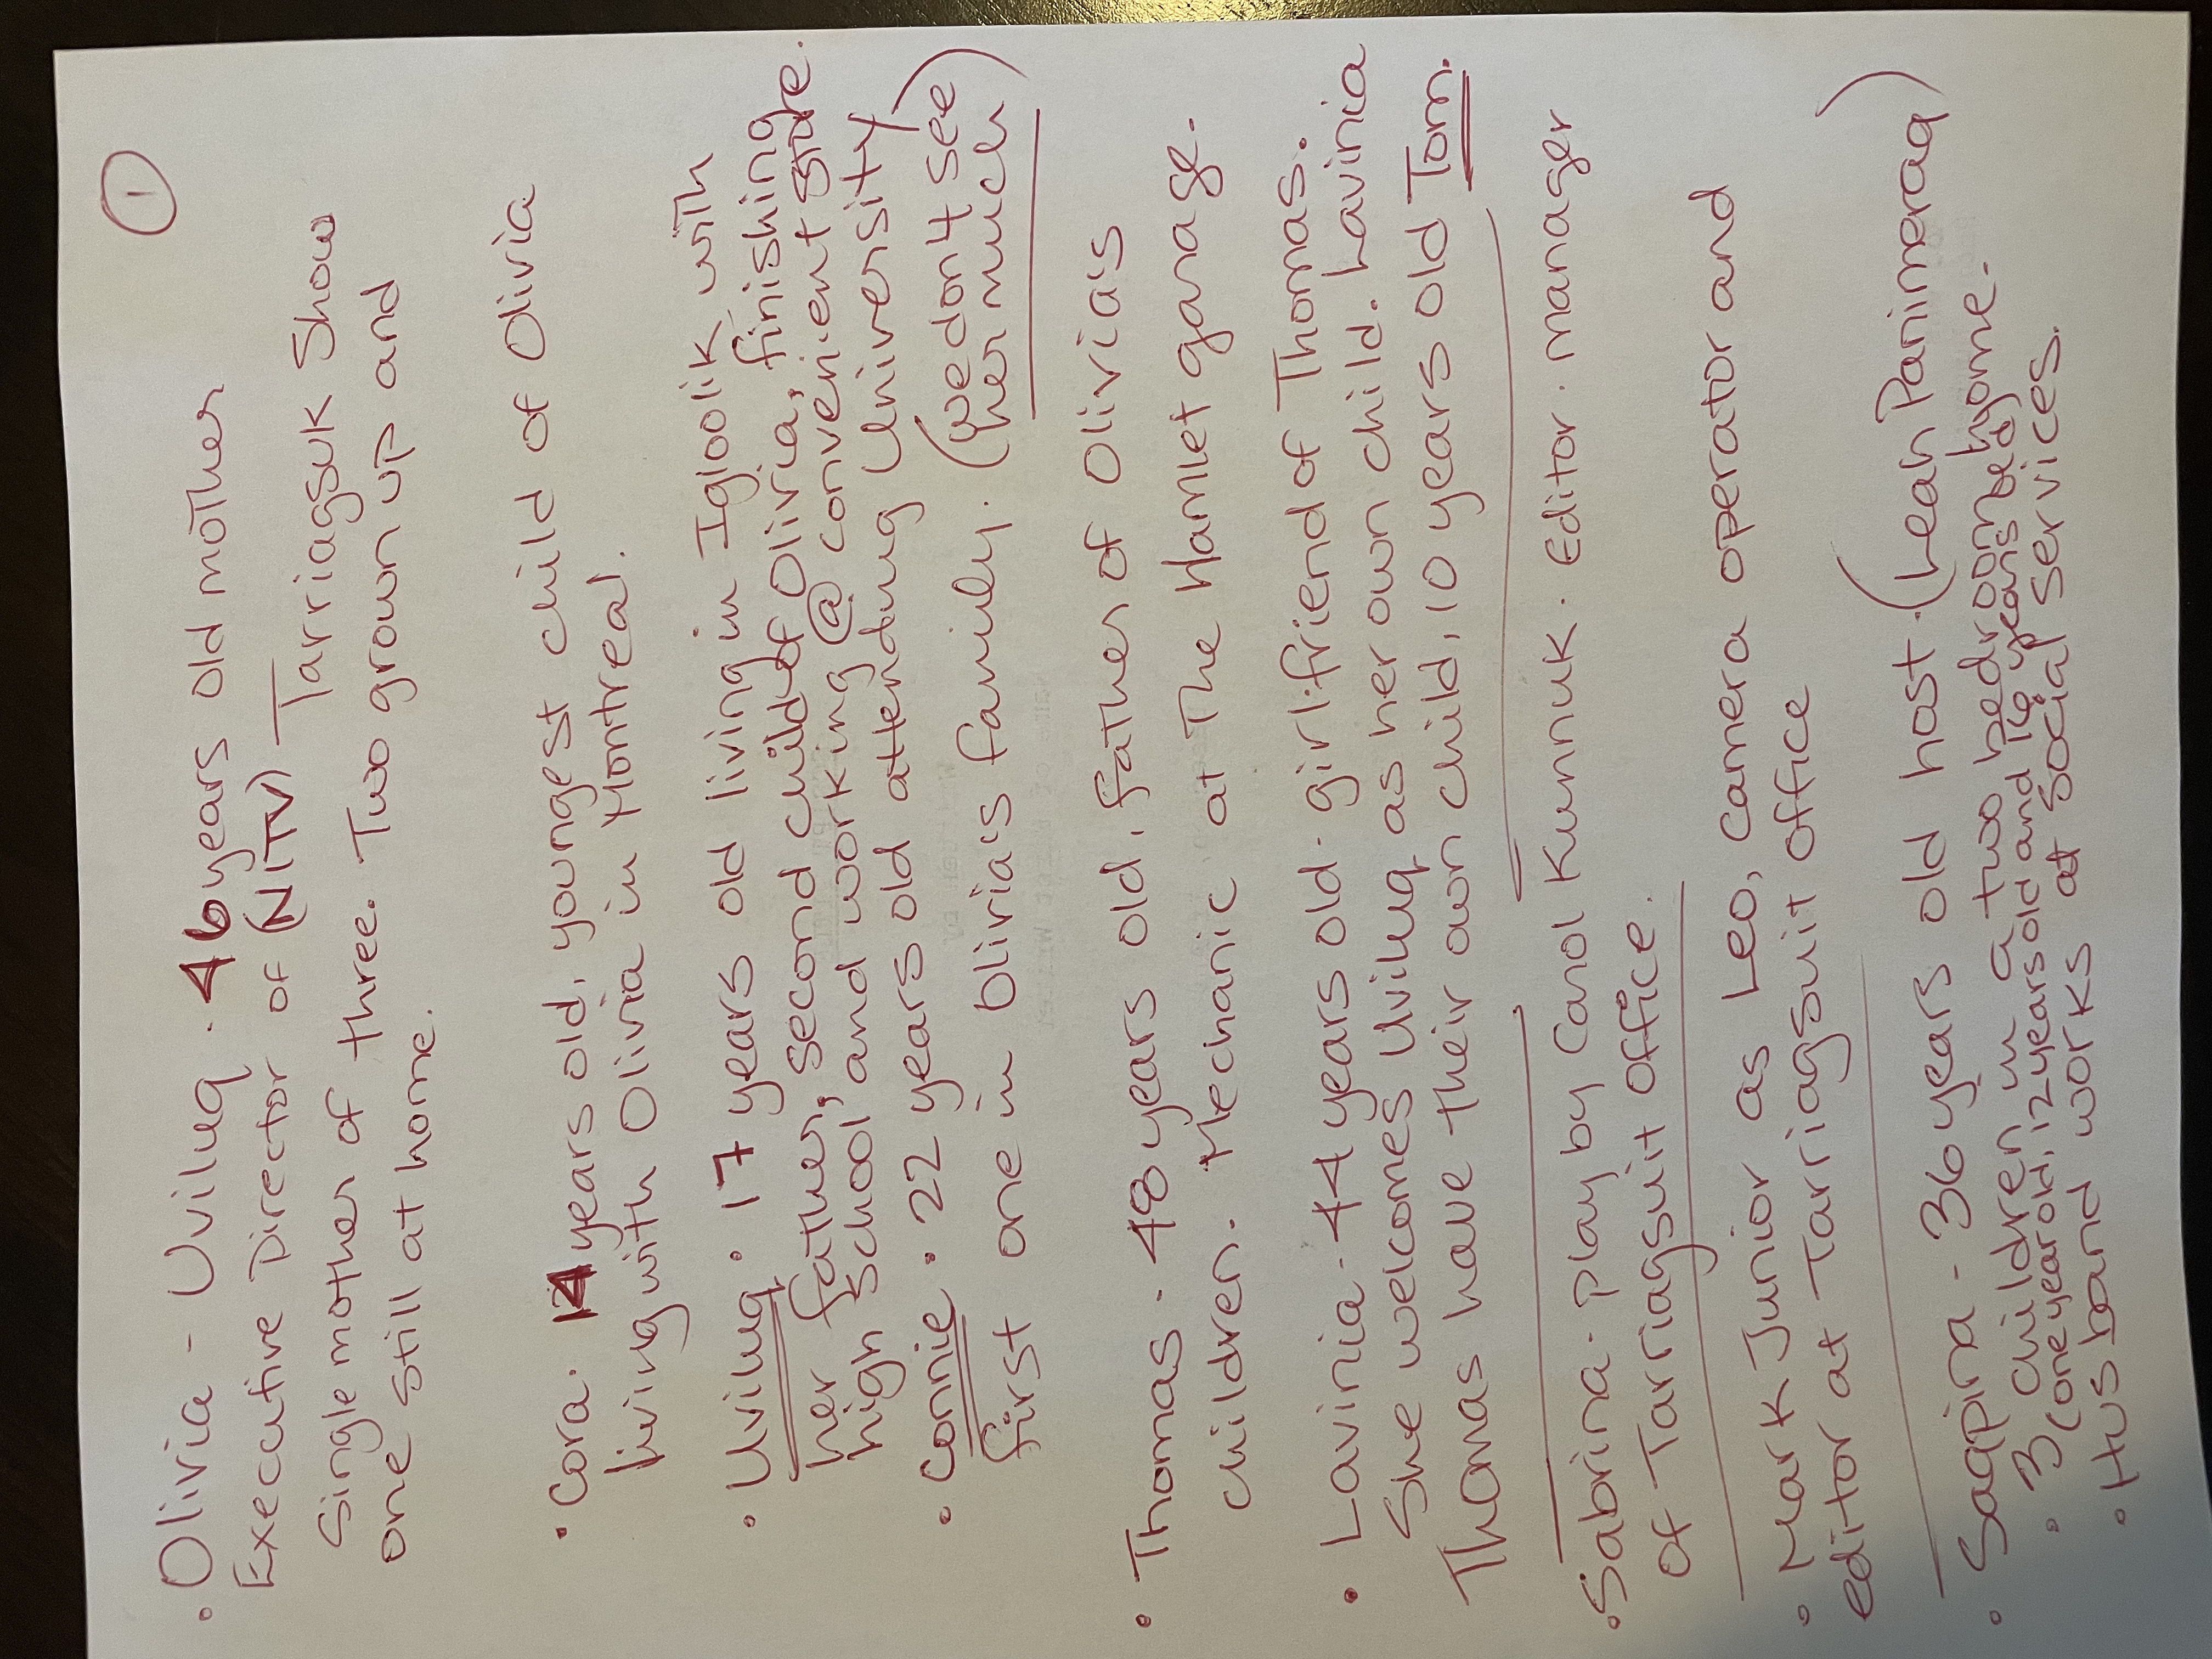 ①
· Olivia - Uviluq · 46 years old mother
Executive Director of (NITV) Tarriagsuk Show
Single mother of three. Two grown up and
one still at home.
· Cora · 14 years old, youngest child of Olivia
living with Olivia in Montreal.
· Uviluq · 17 years old living in Igloolik with
her father, second child of Olivia, finishing
high school and working @ convenient store.
· Connie · 22 years old attending University
first one in Olivia's family. (we don't see
her much)
· Thomas · 48 years old, father of Olivia's
children. Mechanic at The Hamlet garage.
· Lavinia - 44 years old - girlfriend of Thomas.
She welcomes Uviluq as her own child. Lavinia
Thomas have their own child, 10 years old Tom.
· Sabrina - play by Carol Kunnuk. Editor. manager
of Tarriagsuit office.
· Mark Junior as Leo, camera operator and
editor at Tarriagsuit office
· Saqpina - 36 years old host. (Leah Panimeraq)
· 3 children in a two bedroom home.
3 (one year old, 12 years old and 16 years old)
· Husband works at social services.